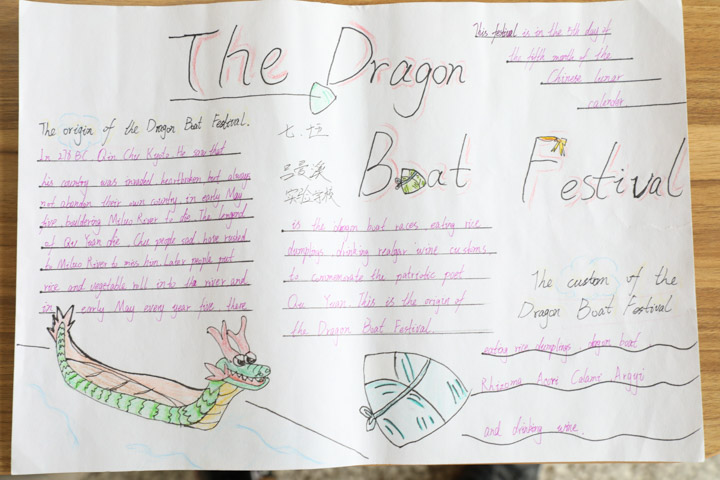 The Dragon
Boat Festival
This festival is in the 5th day of
the fifth month of the
Chinese lunar
calendar
The origin of the Dragon Boat Festival.
In 278 BC. Qin Chu Kyoto He saw that
his country was invaded heartbroken but always
not abandon their own country in early May
five bouldering Miluo River to die The legend
of Qu Yuan die. Chu people sad have rushed
to Miluo River to miss him Later people put
rice and vegetable roll into the river and
in early May every year five there
七
实验学校
is the dragon boat races eating rice
dumplings drinking realgar wine customs
to commemorate the patriotic poet
Qu Yuan. This is the origin of
the Dragon Boat Festival.
The custom of the
Dragon Boat Festival
eating rice dumplings dragon boat
Rhizoma Acori Calami Argyi
and drinking wine.